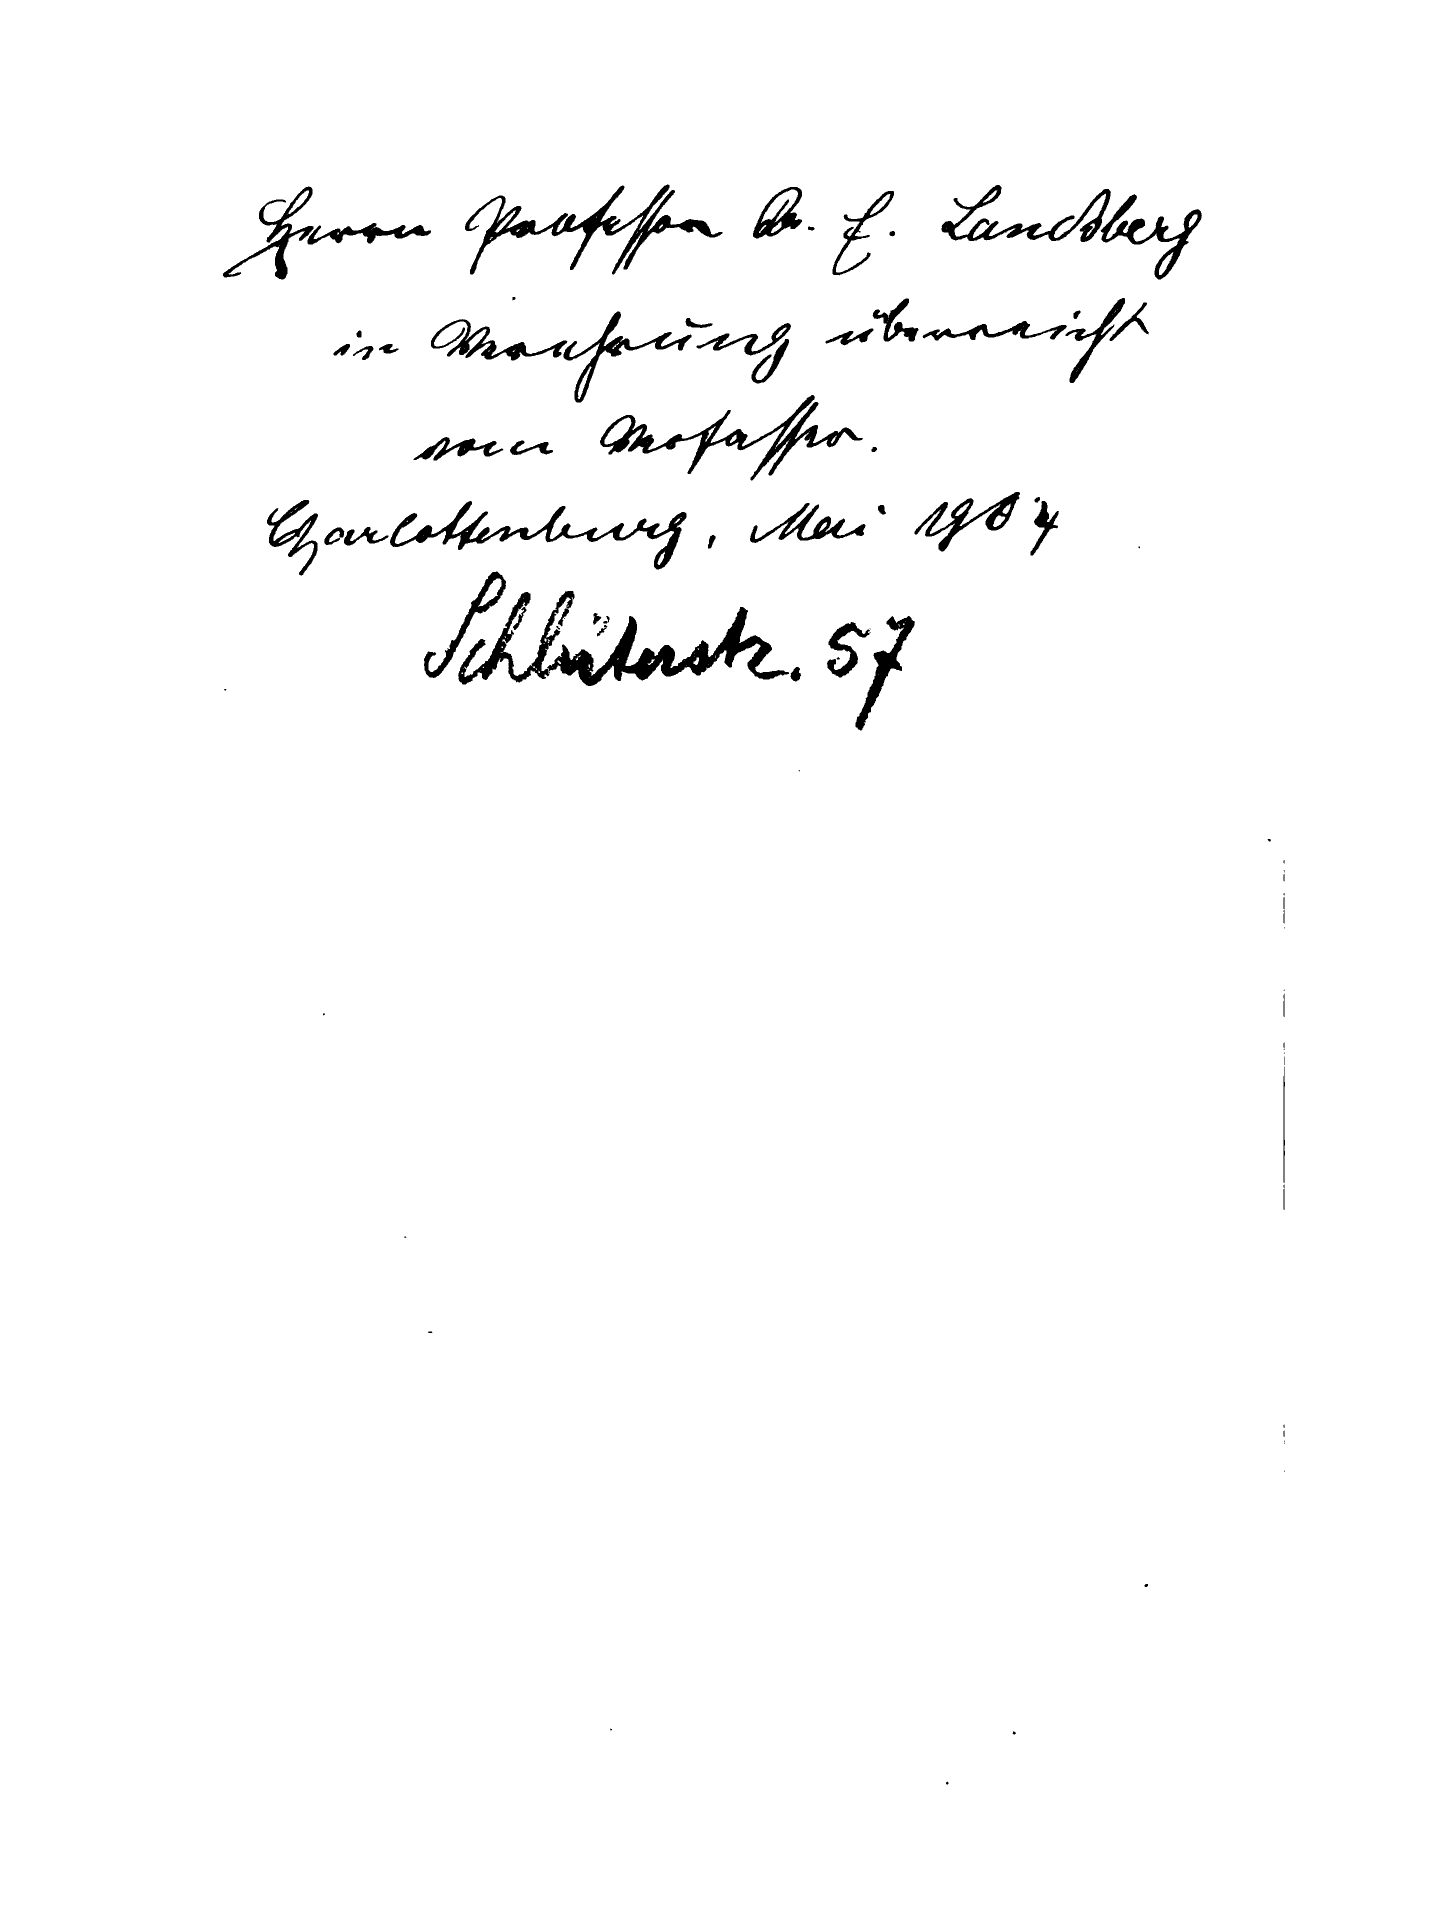 Herrn Professor Dr. E. Landsberg
in Verehrung überreicht
vom Verfasser.
Charlottenburg, Mai 1904
Schlüterstr. 57